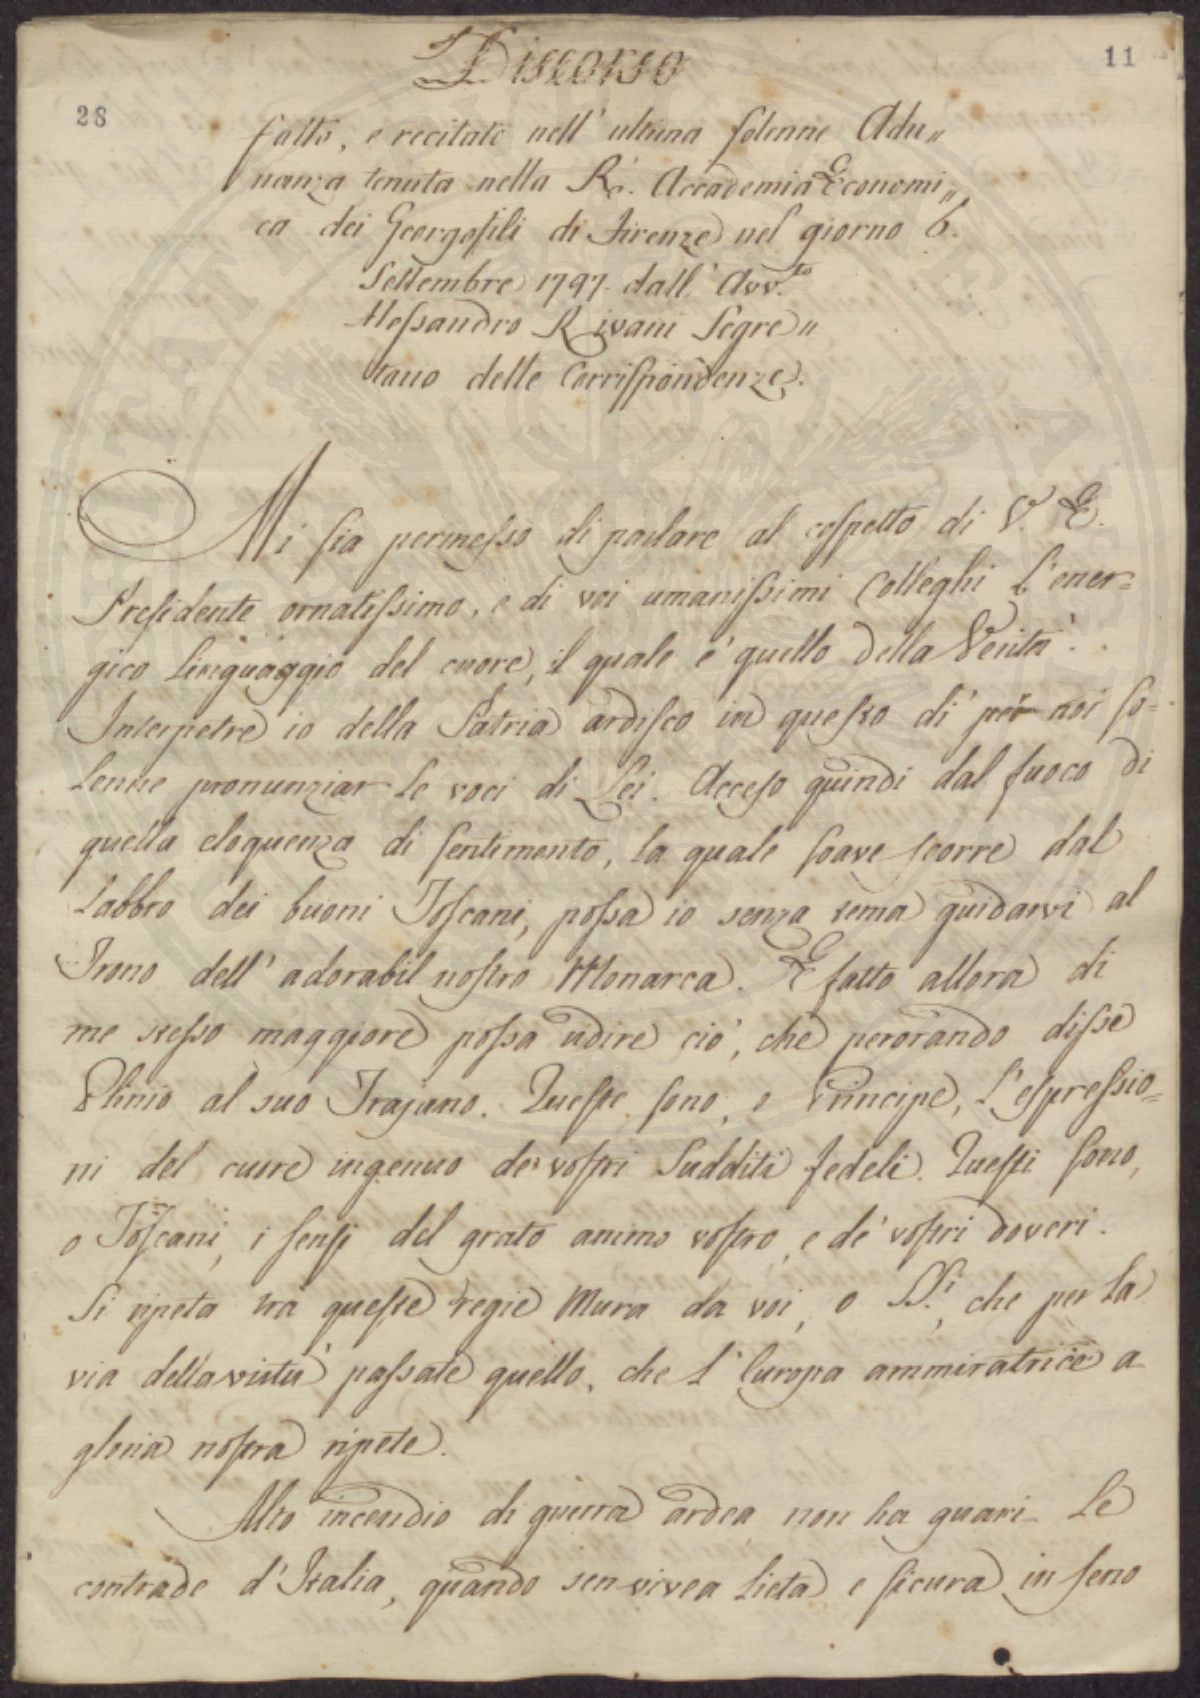 Discorso
11
28
fatto, e recitato nell' ultima solenne Adu„
nanza tenuta nella R. Accademia Economi„
ca dei Georgofili di Firenze nel giorno 6.
Settembre 1797. dall' Avv.to
Alessandro Rivani Segre„
tario delle Corrispondenze.
Mi sia permesso di parlare al cospetto di V. E.
Presidente ornatissimo, e di voi umanissimi Colleghi l'ener=
gico linguaggio del cuore, il quale é quello della Verità.
Interpetre io della Patria ardisco in questo dì per noi so-
lenne pronunziar le voci di Lei. Acceso quindi dal fuoco di
quella eloquenza di sentimento, la quale soave scorre dal
labbro dei buoni Toscani, possa io senza tema guidarvi al
Trono dell' adorabil nostro Monarca. E fatto allora di
me stesso maggiore possa udire ciò, che perorando disse
Plinio al suo Trajano. Queste sono, o Principe, l'espressio=
ni del cuore ingenuo de' vostri Sudditi fedeli. Questi sono,
o Toscani, i sensi del grato animo vostro, e de' vostri doveri.
Si ripeta trà queste regie Mura da voi, o SS.i, che per la
via della virtù passate quello, che l'Europa ammiratrice a
gloria nostra ripete.
Alto incendio di guerra ardea non ha guari le
contrade d'Italia, quando sen vivea lieta e sicura in seno